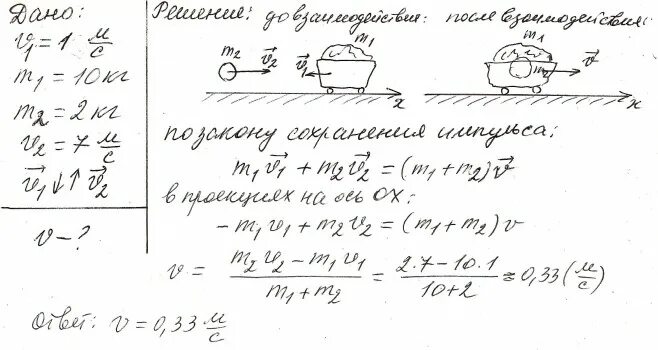 Дано:
v₁ = 1 м/с
m₁ = 10 кг
m₂ = 2 кг
v₂ = 7 м/с
v⃗₁ ↓↑ v⃗₂
v - ?
Решение: до взаимодействия: после взаимодействия:
m₂ v⃗₂ v⃗₁ m₁ x
m₁ m₂ v⃗ x
по закону сохранения импульса:
m₁v⃗₁ + m₂v⃗₂ = (m₁ + m₂)v⃗
в проекциях на ось OX:
-m₁v₁ + m₂v₂ = (m₁ + m₂)v
v = (m₂v₂ - m₁v₁)/(m₁ + m₂) = (2·7 - 10·1)/(10 + 2) ≈ 0,33 (м/с)
Ответ: v = 0,33 м/с